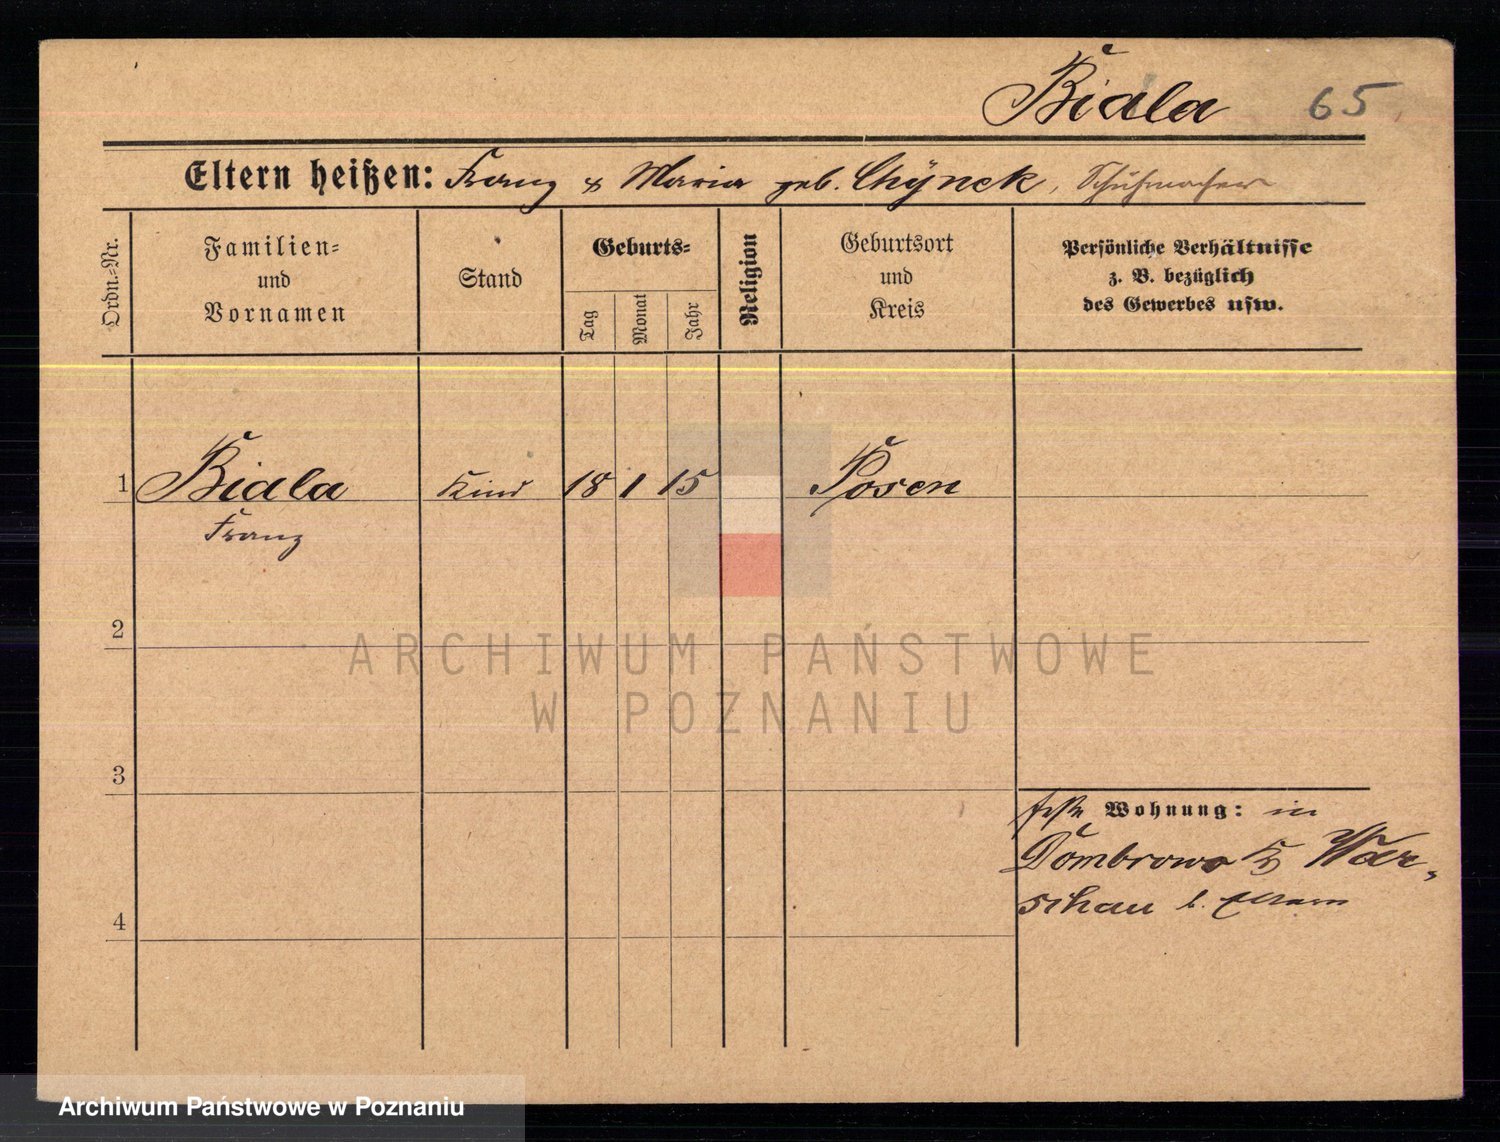 Biala 65
Eltern heißen: Franz & Maria geb. Chÿnek, Schuhmacher
Ordn.-Nr.
Familien-
und
Vornamen
Stand
Geburts-
Tag
Monat
Jahr
Religion
Geburtsort
und
Kreis
Persönliche Verhältnisse
z. B. bezüglich
des Gewerbes usw.
1 Biala Kind 18 1 15 Posen
Franz
2
ARCHIWUM PAŃSTWOWE
W POZNANIU
3
feste Wohnung: in
Dombrowo Kr. War-
schau b. Eltern
4
Archiwum Państwowe w Poznaniu